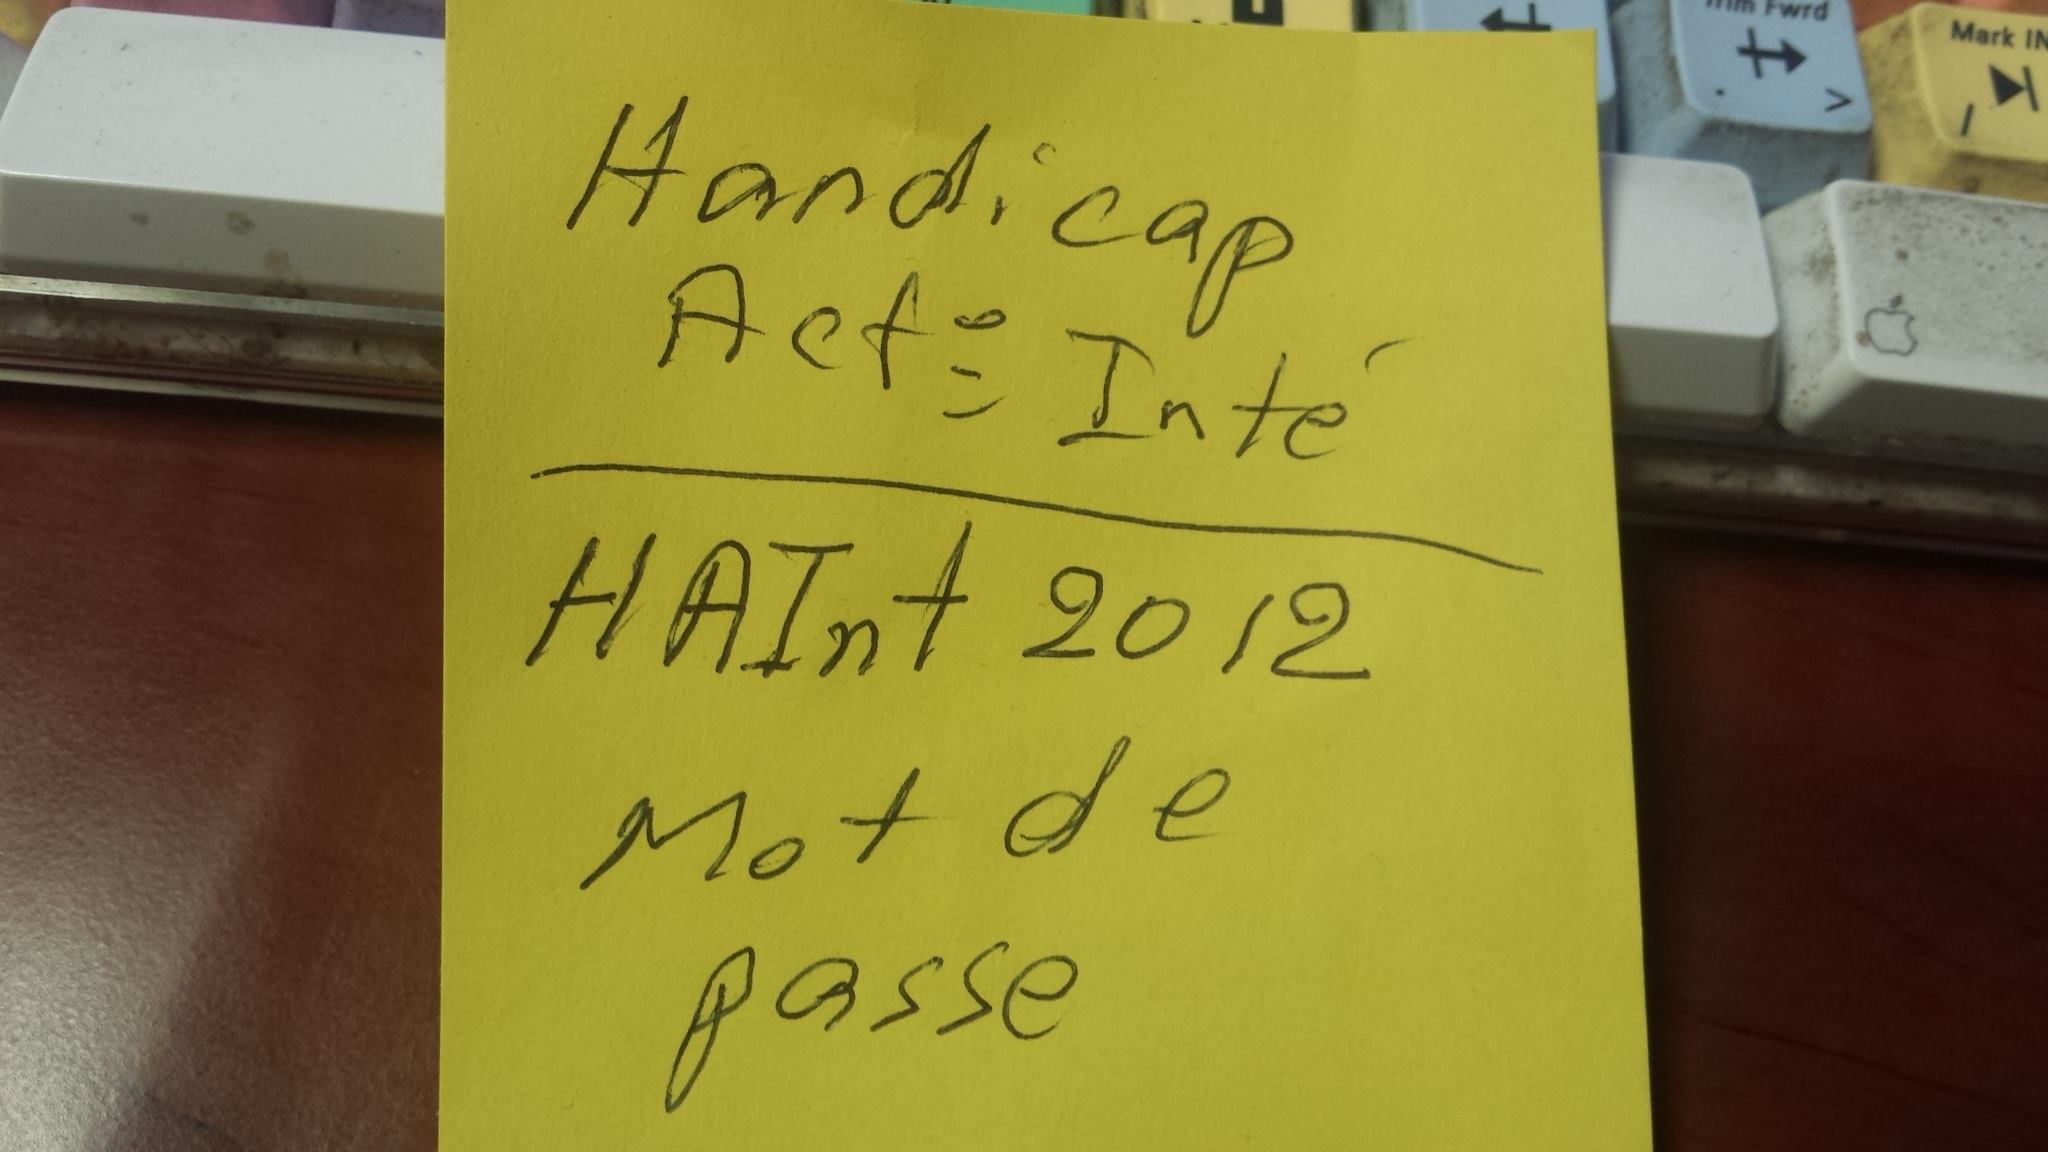 Trim Fwrd
Mark IN
>
/
Handicap
Act: Inté
HAInt 2012
Mot de
passe